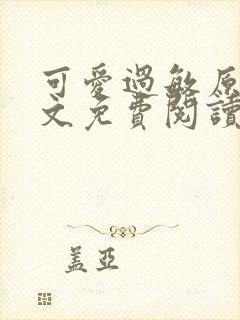 可愛過敏原
文免費閱讀
蓋亞